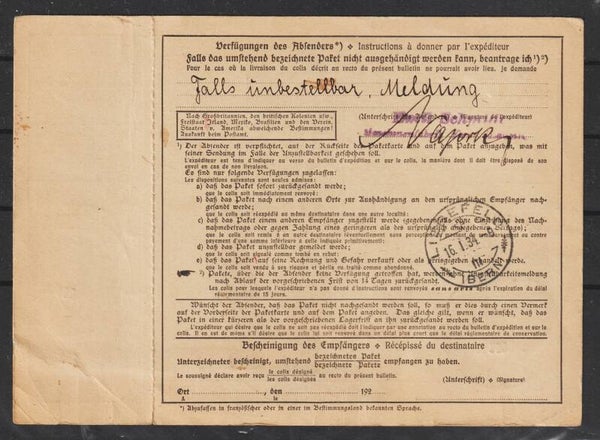 Verfügungen des Absenders*) • Instructions à donner par l'expéditeur
Falls das umstehend bezeichnete Paket nicht ausgehändigt werden kann, beantrage ich¹)²)
Pour le cas où la livraison du colis décrit au recto du présent bulletin ne pourrait avoir lieu, je demande
Falls unbestellbar, Meldung
Nach Großbritannien, den britischen Kolonien usw.,
Freistaat Irland, Mexiko, Brasilien und den Verein.
Staaten v. Amerika abweichende Bestimmungen!
Auskunft beim Postamt.
(Unterschrift des Absenders) (Signature de l'expéditeur)
¹) Der Absender ist verpflichtet, auf der Rückseite der Paketkarte und auf dem Paket anzugeben, was mit
seiner Sendung im Falle der Unzustellbarkeit geschehen soll.
L'expéditeur est tenu d'indiquer au verso du bulletin d'expédition et sur le colis, la manière dont il doit être disposé de son
envoi en cas de non-livraison.
Es sind nur folgende Verfügungen zugelassen:
Les dispositions suivantes sont seules admises:
a) daß das Paket sofort zurückgesandt werde;
que le colis soit immédiatement renvoyé;
b) daß das Paket nach einem anderen Orte zur Aushändigung an den ursprünglichen Empfänger nach-
gesandt werde;
que le colis soit réexpédié au même destinataire dans une autre localité;
c) daß das Paket einem anderen Empfänger zugestellt werde (gegebenenfalls ohne Einziehung des Nach-
nahmebetrags oder gegen Zahlung eines geringeren als des ursprünglich angegebenen Betrags);
que le colis soit remis à un autre destinataire (éventuellement sans perception du remboursement ou contre paiement
d'une somme inférieure à celle indiquée primitivement);
d) daß das Paket auf seine Rechnung und Gefahr verkauft oder als preisgegeben behandelt werde.
que le colis soit vendu à ses risques et périls ou traité comme abandonné.
²) Pakete, über die der Absender keine Verfügung getroffen hat, werden ohne Unzustellbarkeitsmeldung
nach Ablauf der vorgeschriebenen Frist von 14 Tagen zurückgesandt.
Les colis pour lesquels l'expéditeur n'a pas donné d'instructions sont renvoyés sans avis après l'expiration du délai
réglementaire de 15 jours.
KREFELD
16.1.34
Wünscht der Absender, daß das Paket nicht nachgesandt werden soll, so muß er dies durch einen Vermerk
auf der Vorderseite der Paketkarte und auf dem Paket angeben. Das gleiche gilt, wenn er wünscht, daß das
Paket in einer kürzeren als der vorgeschriebenen Lagerfrist an ihn zurückgesandt werden soll.
L'expéditeur qui désire que le colis ne soit pas réexpédié doit l'indiquer par une annotation au recto du bulletin d'expédition et sur le colis.
Il en est de même s'il désire que le colis lui soit renvoyé dans un délai plus court que le délai réglementaire de conservation.
Bescheinigung des Empfängers • Récépissé du destinataire
Unterzeichneter bescheinigt, umstehend bezeichnetes Paket / bezeichnete Pakete empfangen zu haben.
Le soussigné déclare avoir reçu le colis désigné / les colis désignés au recto du présent bulletin.
(Unterschrift) (Signature)
Ort , den 192
A le
*) Abzufassen in französischer oder in einer im Bestimmungsland bekannten Sprache.